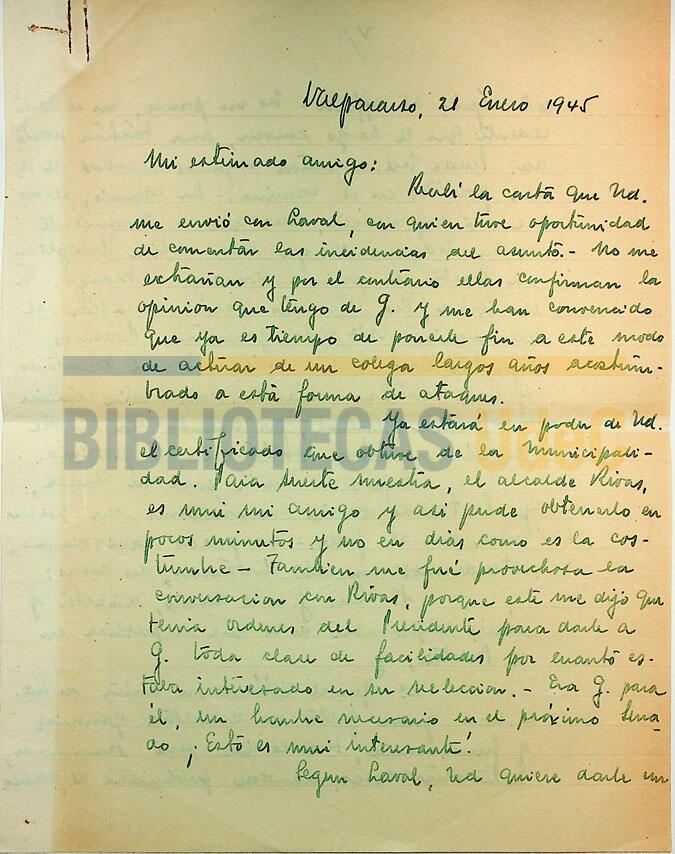 Valparaiso, 21 Enero 1945
Mi estimado amigo:
Recibí la carta que Ud.
me envió con Laval, con quien tuve oportunidad
de comentar las incidencias del asunto.- No me
extrañan y por el contrario ellas confirman la
opinion que tengo de G. y me han convencido
que ya es tiempo de ponerle fin a este modo
de actuar de un colega largos años acostum-
brado a esta forma de ataques.
Ya estará en poder de Ud.
el certificado que obtuve de la Municipali-
dad. Para suerte nuestra, el alcalde Rivas,
es mui mi amigo y asi pude obtenerlo en
pocos minutos y no en dias como es la cos-
tumbre - Tambien me fué provechosa la
conversacion con Rivas, porque este me dijo que
tenia ordenes del Presidente para darle a
G. toda clase de facilidades por cuanto es-
taba interesado en su reeleccion.- Era G. para
él, un hombre necesario en el próximo Sena-
do ¡Esto es mui interesante!
Segun Laval, Ud quiere darle un
BIBLIOTECAS UdeC